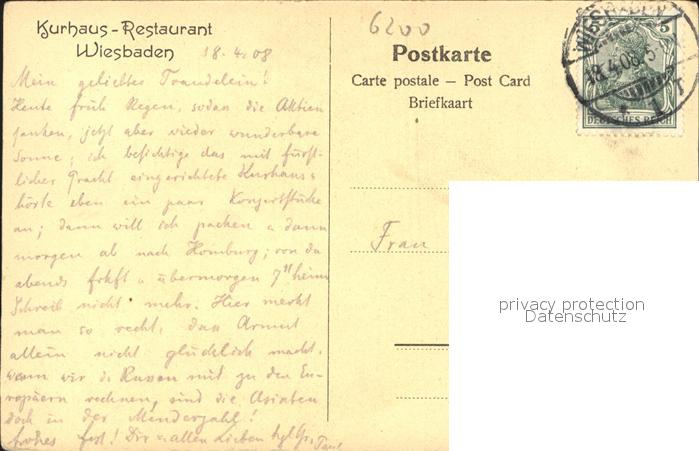 Kurhaus-Restaurant
Wiesbaden
18.4.08
Mein geliebtes Traudelein!
Heute früh Regen, sodas die Aktien
sanken, jetzt aber wieder wunderbare
Sonne; ich besichtige das mit fürst-
licher Pracht eingerichtete Kurhaus u
hörte eben ein paar Konzertstücke
an; dann will ich packen u dann
morgen ab nach Homburg; von da
abends u übermorgen 7 heim
Schreib nicht mehr. Hier merkt
man so recht, dass Armut
allein nicht glücklich macht.
wenn wir die Russen mit zu den Eu-
ropäern rechnen, sind die Asiaten
doch in der Minderzahl!
frohes Fest! Dir u allen Lieben hzl Gr. Paul
6200
Postkarte
Carte postale – Post Card
Briefkaart
WIESBADEN
18.4.08. 5
* 1
DEUTSCHES REICH
5
Frau
privacy protection
Datenschutz